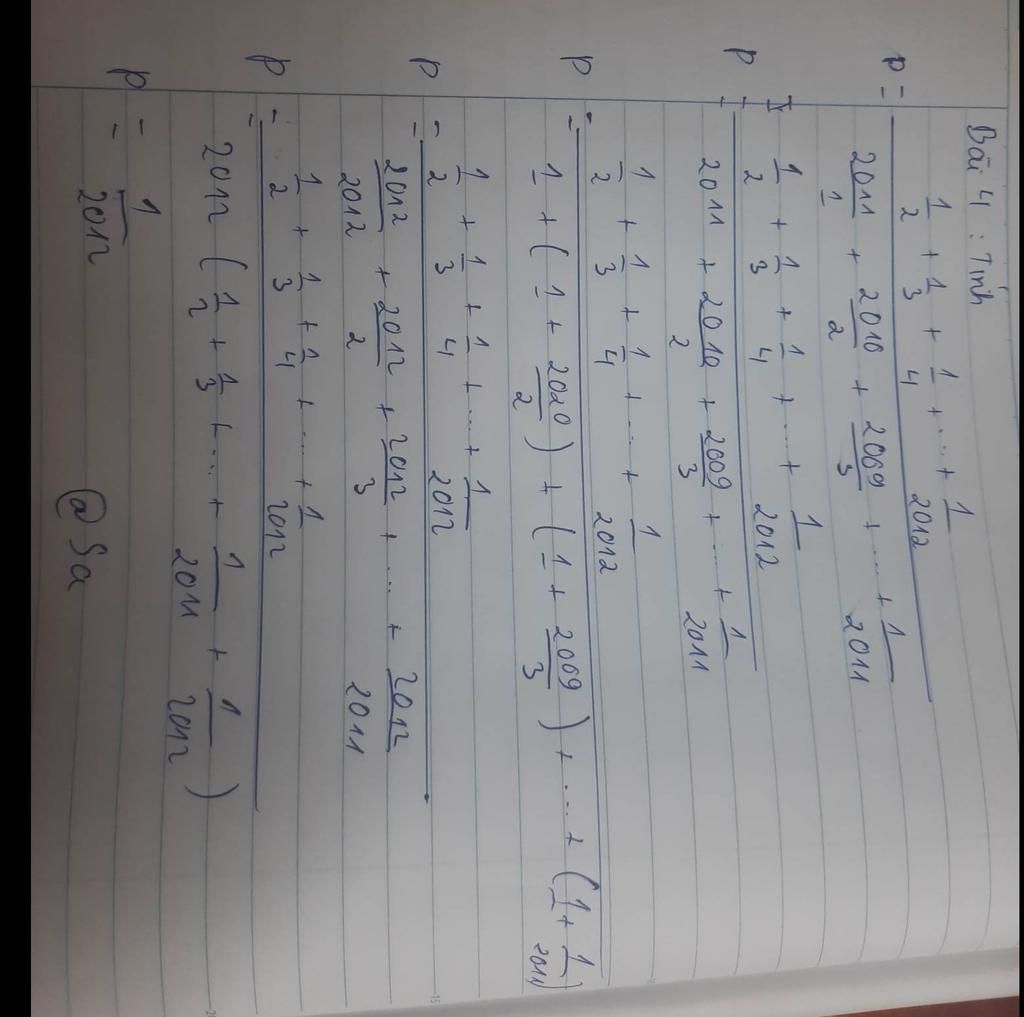 Bài 4 : Tính
1/2 + 1/3 + 1/4 + ... + 1/2012
P = ―――
2011/1 + 2010/2 + 2009/3 + ... + 1/2011
1/2 + 1/3 + 1/4 + ... + 1/2012
P = ―――
2011 + 2010/2 + 2009/3 + ... + 1/2011
1/2 + 1/3 + 1/4 + ... + 1/2012
P = ―――
1 + (1 + 2020/2) + (1 + 2009/3) + ... + (1 + 1/2011)
1/2 + 1/3 + 1/4 + ... + 1/2012
P = ―――
2012/2012 + 2012/2 + 2012/3 + ... + 2012/2011
1/2 + 1/3 + 1/4 + ... + 1/2012
P = ―――
2012 (1/2 + 1/3 + ... + 1/2011 + 1/2012)
P = 1/2012
@Sa